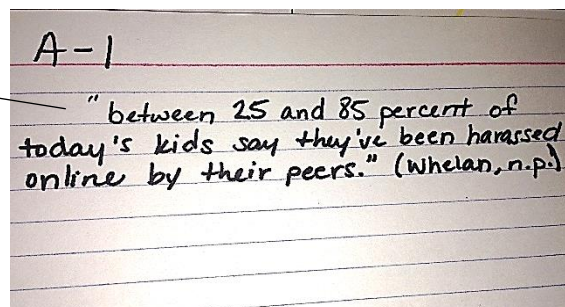 A-1
"between 25 and 85 percent of
today's kids say they've been harassed
online by their peers." (Whelan, n.p.)